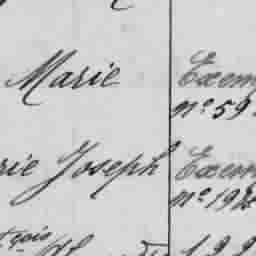 Marie Exem
n° 59
rie Joseph Exem
n° 192
çois